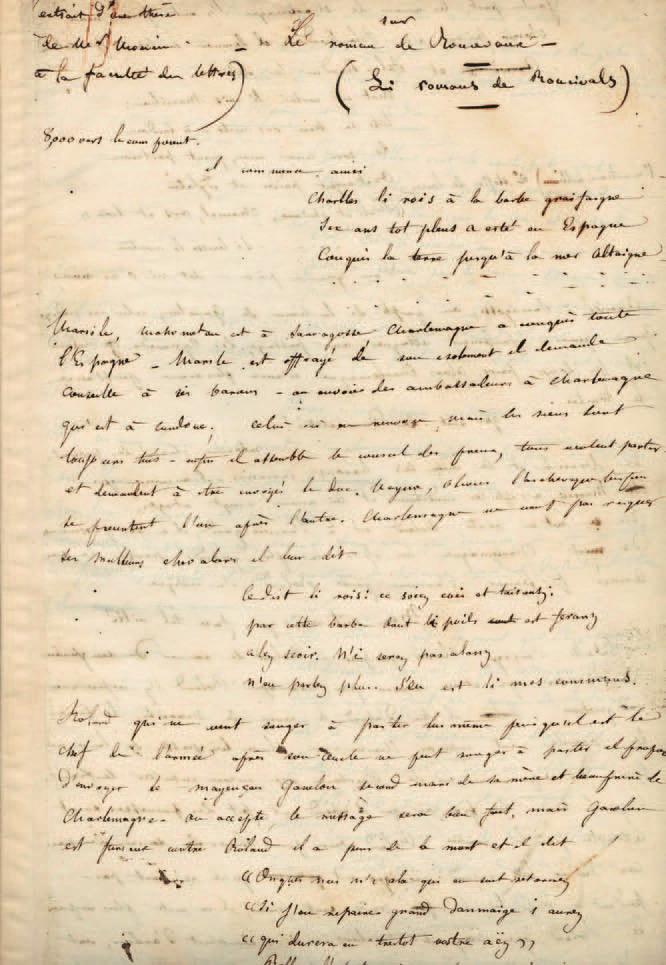 (extrait d'une thèse
de Mr Monin
à la faculté des lettres)
sur
Le roman de Roncevaux
(Li romans de Roncivals)
8,000 vers le composent.
il commence ainsi
Charlles li rois à la barbe graifaigne
Sex ans tot pleus a esté en Espagne
Conquis la terre jusqu'à la mer Altaigne
Marsile, mahometan est à Sarragosse Charlemagne a conquis toute
l'Espagne - Marsile est effrayé de son isolement il demande
conseille à ses barons - on envoie des ambassadeurs à Charlemagne
qui est à Cordoue. Celui ci en renvoye, mais les siens sont
toujours tués - enfin il assemble le conseil des preux, tous veulent partir
et demandent à être envoyés le duc Naymes, Olivier l'archeveque Turpin
se présentent l'un après l'autre. Charlemagne ne veut pas risquer
ses meilleurs chevaliers il leur dit
Ce dist li rois: ce soiez cois et taisanz;
par cette barbe dont li poils est feranz
alez seoir. N'i serez pas alanz
n'en parlez plus. S'en est li mes commans.
Roland qui ne veut songer à partir lui même puisqu'il est le
chef de l'armée après son oncle ne peut songer à partir il propose
d'envoyer le mayençais Ganelon second mari de sa mère et beaufrère de
Charlemagne - on accepte le message sera bien fait, mais Ganelon
est furieux contre Roland il a peur de la mort et il dit
"Onques nus n'i ala qui en soit retornez
"Si j'en repaire grand danmaige i aurez
"qui durera en trestot vostre aëz"